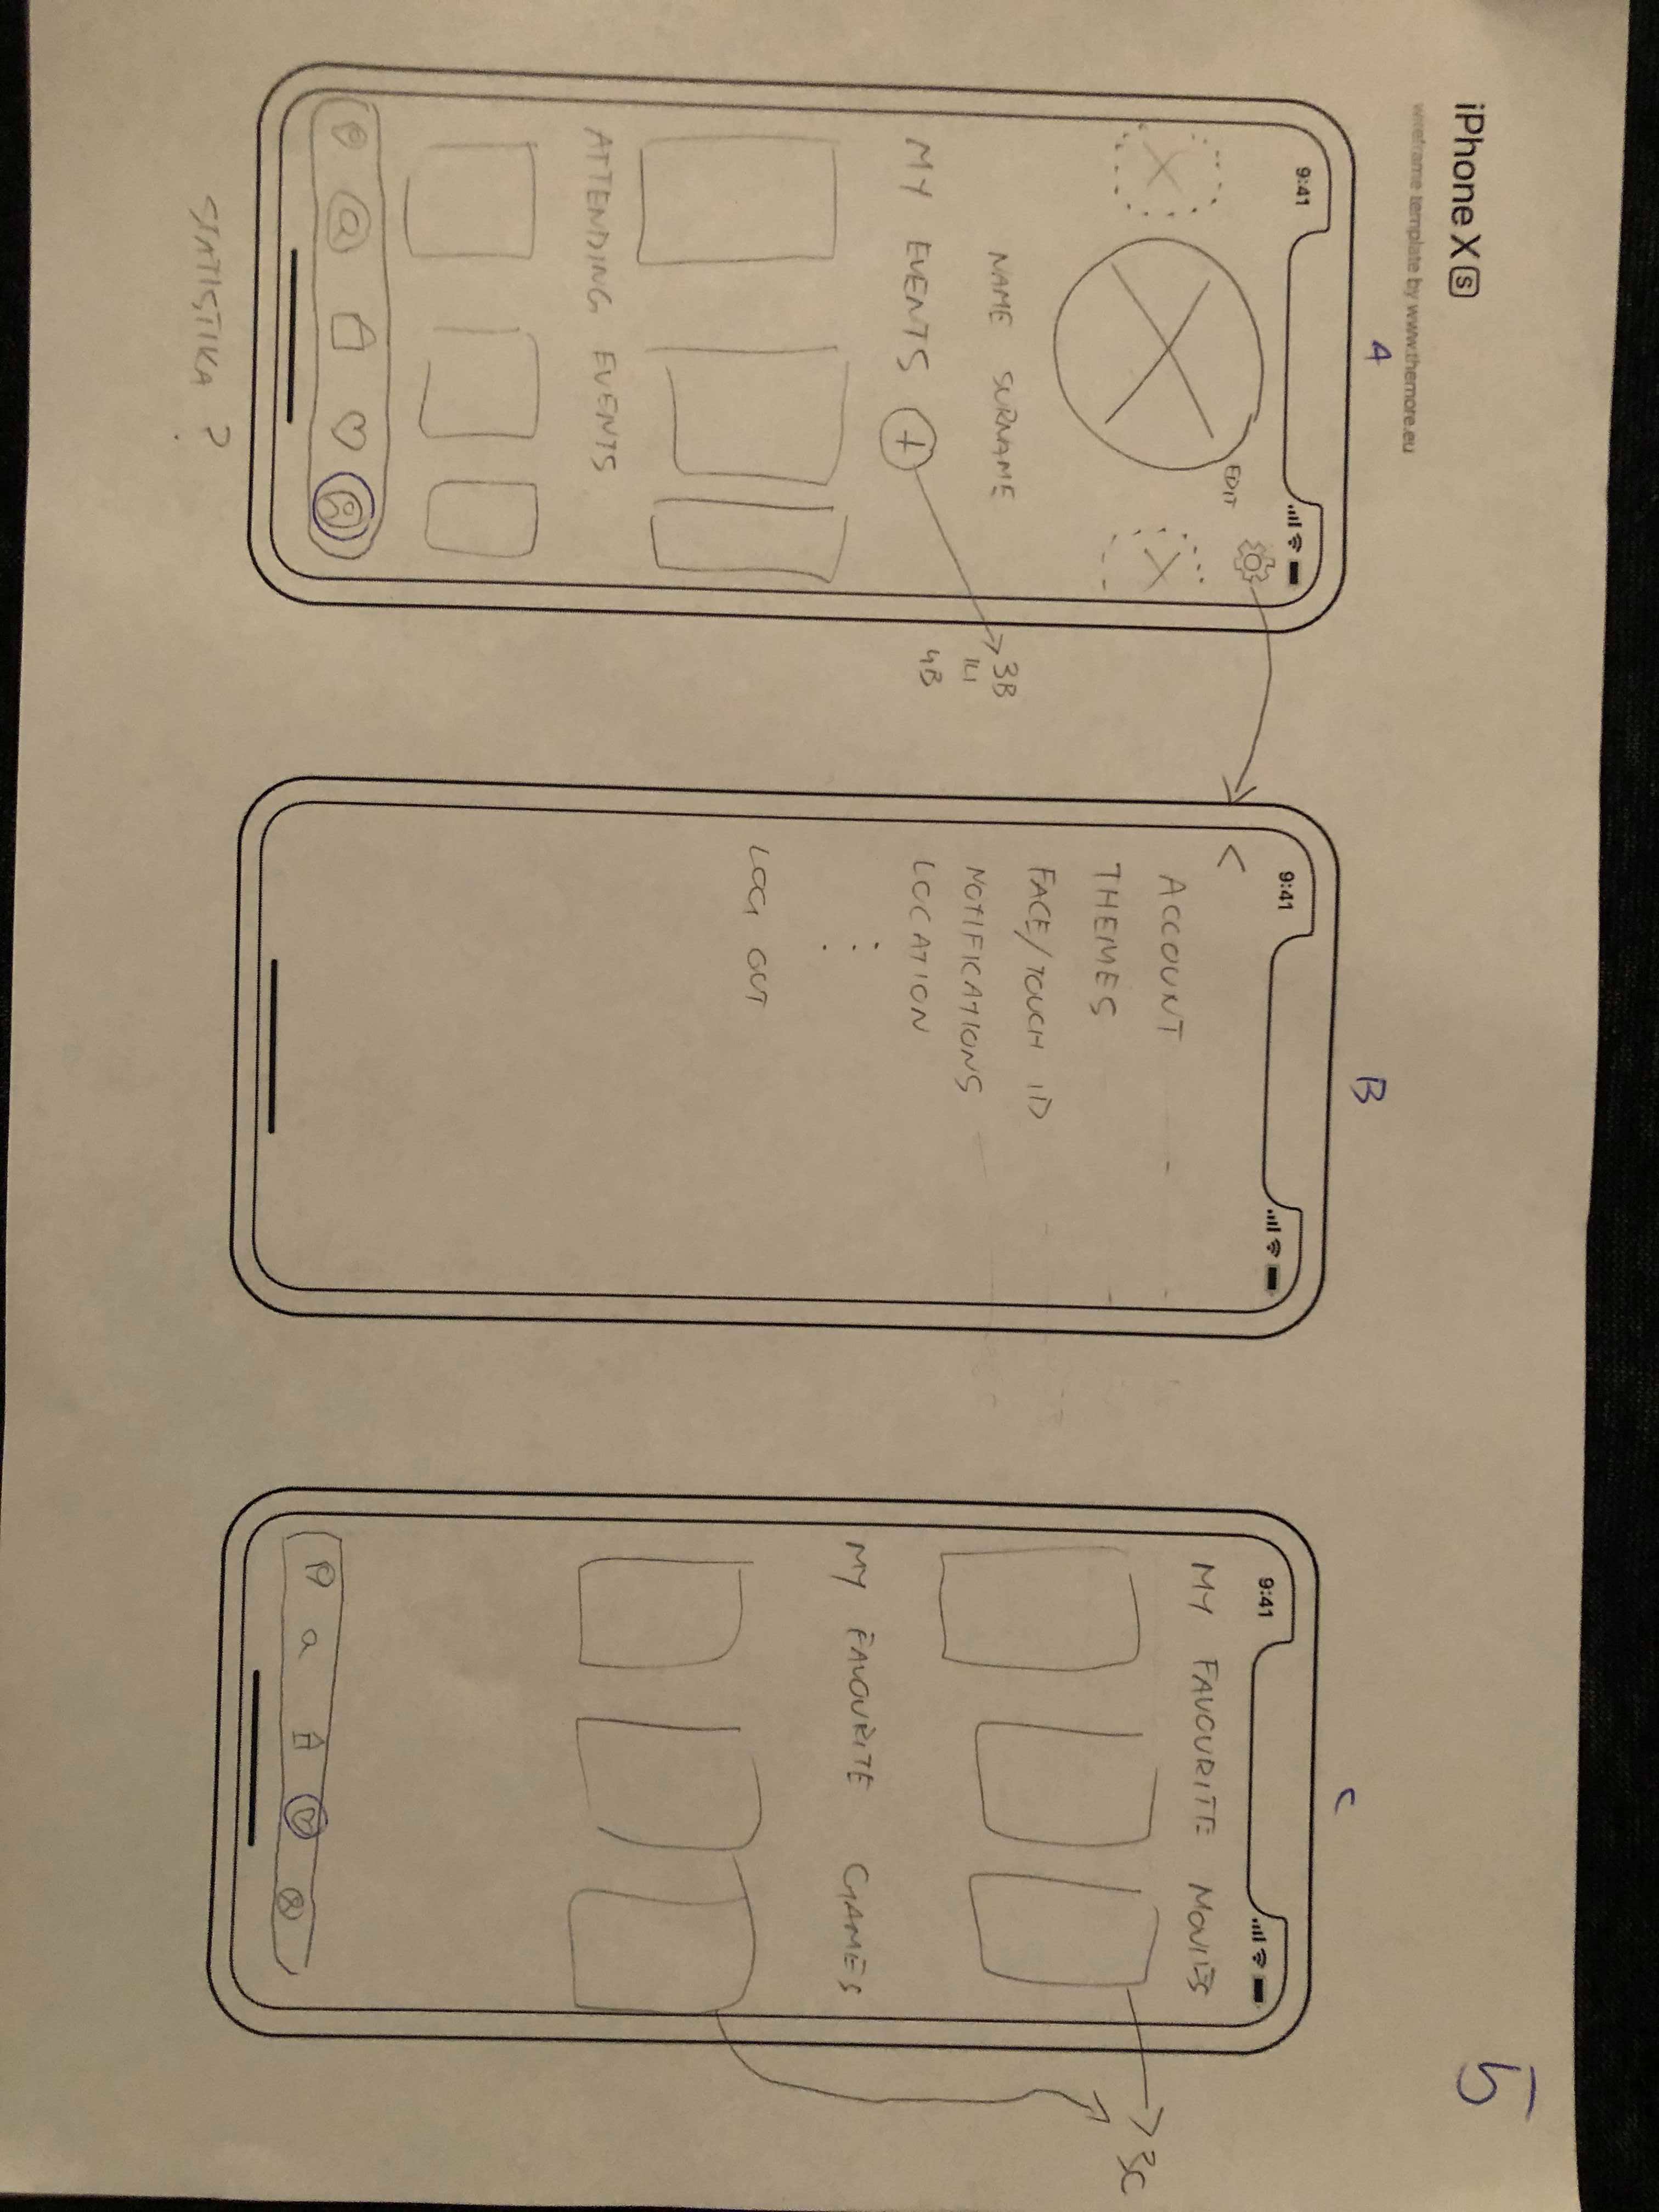 iPhone X S
wireframe template by www.themore.eu
5
A
9:41
EDIT
NAME SURNAME
MY EVENTS +
3B
ILI
4B
ATTENDING EVENTS
STATISTIKA ?
B
9:41
<
ACCOUNT
THEMES
FACE/TOUCH ID
NOTIFICATIONS
LOCATION
LOG OUT
C
9:41
MY FAVOURITE MOVIES
3C
MY FAVOURITE GAMES